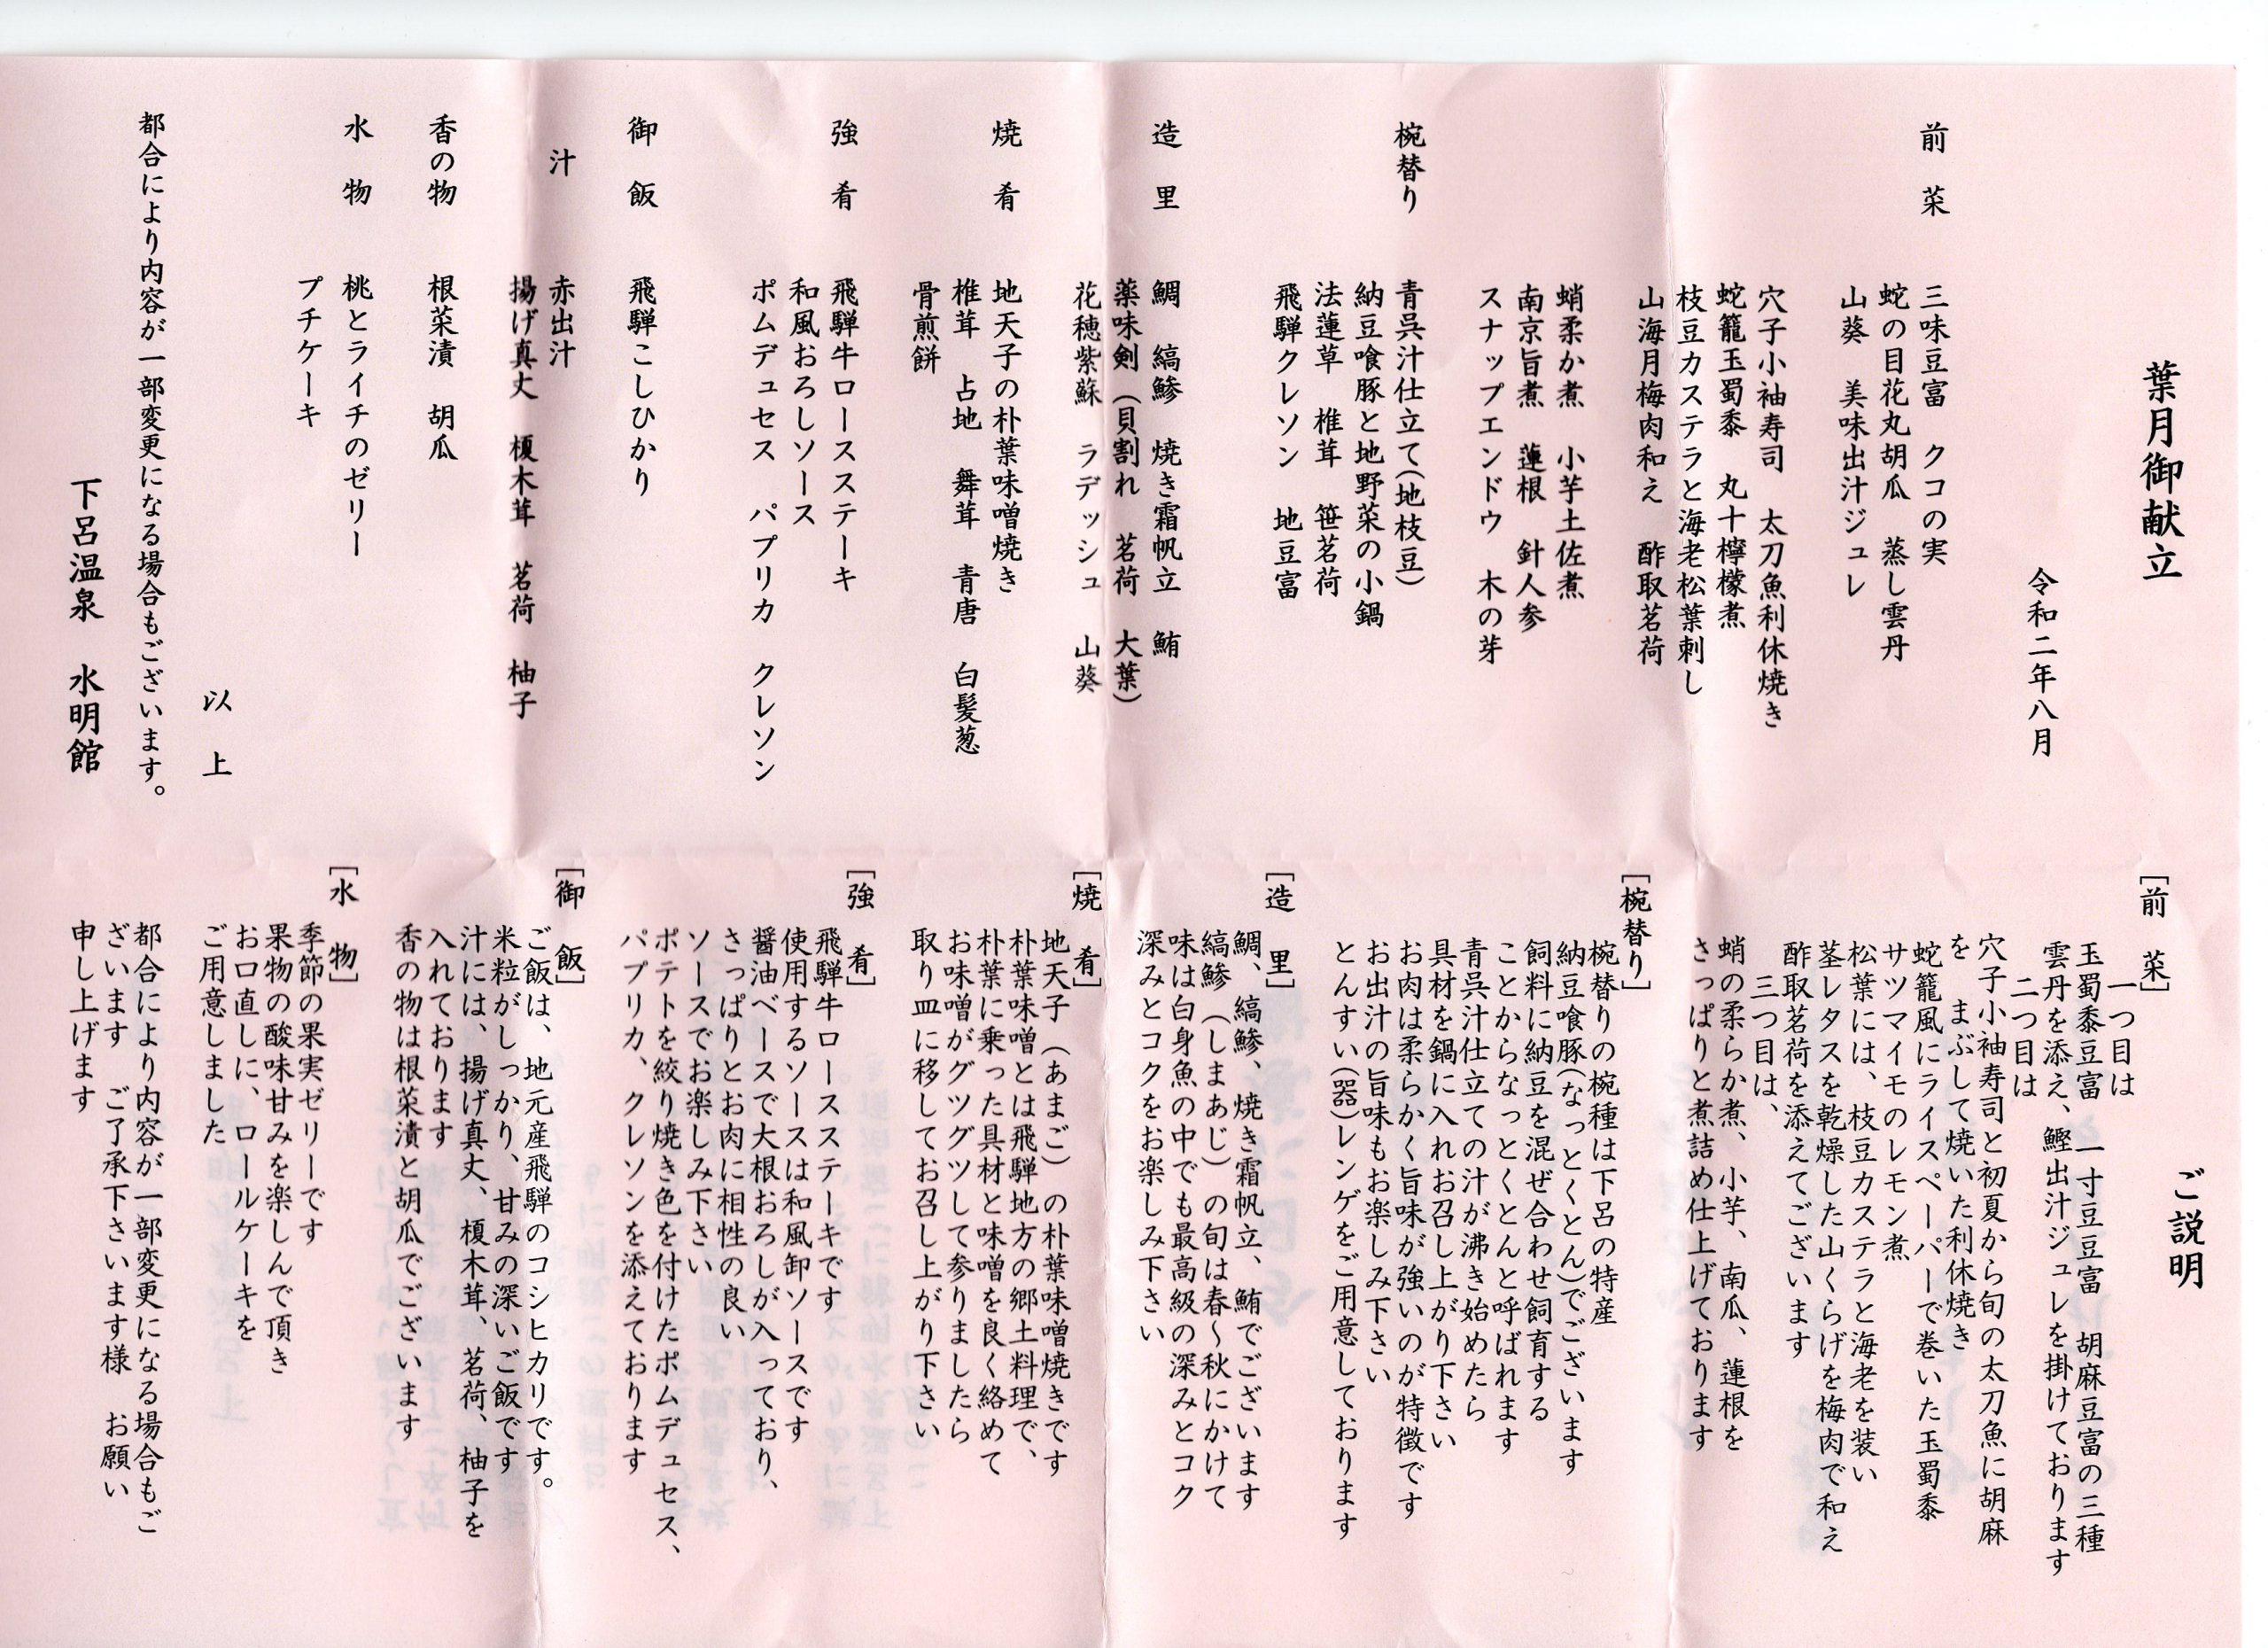 葉月御献立
令和二年八月
前菜
三味豆富 クコの実
蛇の目花丸胡瓜 蒸し雲丹
山葵 美味出汁ジュレ
穴子小袖寿司 太刀魚利休焼き
蛇籠玉蜀黍 丸十檸檬煮
枝豆カステラと海老松葉刺し
山海月梅肉和え 酢取茗荷
蛸柔か煮 小芋土佐煮
南京旨煮 蓮根 針人参
スナップエンドウ 木の芽
椀替り
青呉汁仕立て(地枝豆)
納豆喰豚と地野菜の小鍋
法蓮草 椎茸 笹茗荷
飛騨クレソン 地豆富
造里
鯛 縞鯵 焼き霜帆立 鮪
薬味剣(貝割れ 茗荷 大葉)
花穂紫蘇 ラデッシュ 山葵
焼肴
地天子の朴葉味噌焼き
椎茸 占地 舞茸 青唐 白髪葱
骨煎餅
強肴
飛騨牛ロースステーキ
和風おろしソース
ポムデュセス パプリカ クレソン
御飯
飛騨こしひかり
汁
赤出汁
揚げ真丈 榎木茸 茗荷 柚子
香の物
根菜漬 胡瓜
水物
桃とライチのゼリー
プチケーキ
以上
都合により内容が一部変更になる場合もございます。
下呂温泉 水明館
ご説明
[前菜]
一つ目は
玉蜀黍豆富 一寸豆豆富 胡麻豆富の三種
雲丹を添え、鰹出汁ジュレを掛けております
二つ目は
穴子小袖寿司と初夏から旬の太刀魚に胡麻
を まぶして焼いた利休焼き
蛇籠風にライスペーパーで巻いた玉蜀黍
サツマイモのレモン煮
松葉には、枝豆カステラと海老を装い
茎レタスを乾燥した山くらげを梅肉で和え
酢取茗荷を添えてございます
三つ目は、
蛸の柔らか煮、小芋、南瓜、蓮根を
さっぱりと煮詰め仕上げております
[椀替り]
椀替りの椀種は下呂の特産
納豆喰豚(なっとくとん)でございます
飼料に納豆を混ぜ合わせ飼育する
ことからなっとくとんと呼ばれます
青呉汁仕立ての汁が沸き始めたら
具材を鍋に入れお召し上がり下さい
お肉は柔らかく旨味が強いのが特徴です
お出汁の旨味もお楽しみ下さい
とんすい(器)レンゲをご用意しております
[造里]
鯛、縞鯵、焼き霜帆立、鮪でございます
縞鯵(しまあじ)の旬は春～秋にかけて
味は白身魚の中でも最高級の深みとコク
深みとコクをお楽しみ下さい
[焼肴]
地天子(あまご)の朴葉味噌焼きです
朴葉味噌とは飛騨地方の郷土料理で、
朴葉に乗った具材と味噌を良く絡めて
お味噌がグツグツして参りましたら
取り皿に移してお召し上がり下さい
[強肴]
飛騨牛ロースステーキです
使用するソースは和風卸ソースです
醤油ベースで大根おろしが入っており、
さっぱりとお肉に相性の良い
ソースでお楽しみ下さい
ポテトを絞り焼き色を付けたポムデュセス、
パプリカ、クレソンを添えております
[御飯]
ご飯は、地元産飛騨のコシヒカリです。
米粒がしっかり、甘みの深いご飯です
汁には、揚げ真丈、榎木茸、茗荷、柚子を
入れております
香の物は根菜漬と胡瓜でございます
[水物]
季節の果実ゼリーです
果物の酸味甘みを楽しんで頂き
お口直しに、ロールケーキを
ご用意しました
都合により内容が一部変更になる場合もご
ざいます ご了承下さいます様 お願い
申し上げます